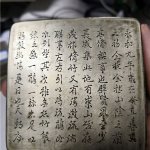 永和九年歲在癸丑暮春
之初會于會稽山陰之蘭
亭修禊事也
咸集此地有崇山
茂林脩竹又有清流激
左右引以為流觴
水列坐其次雖無絲竹
之盛一觴一詠亦足以
暢敘幽情是日也天朗氣